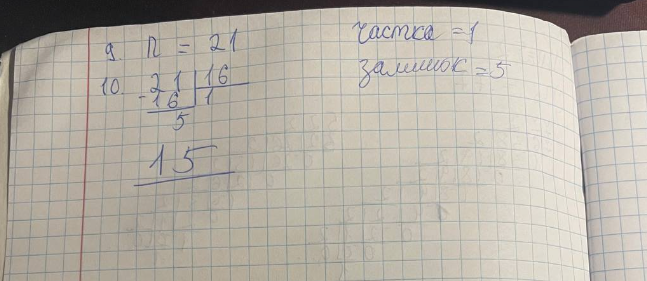 9. n = 21
10. 21 | 16
-16 | 1
5
15
частка = 1
залишок = 5